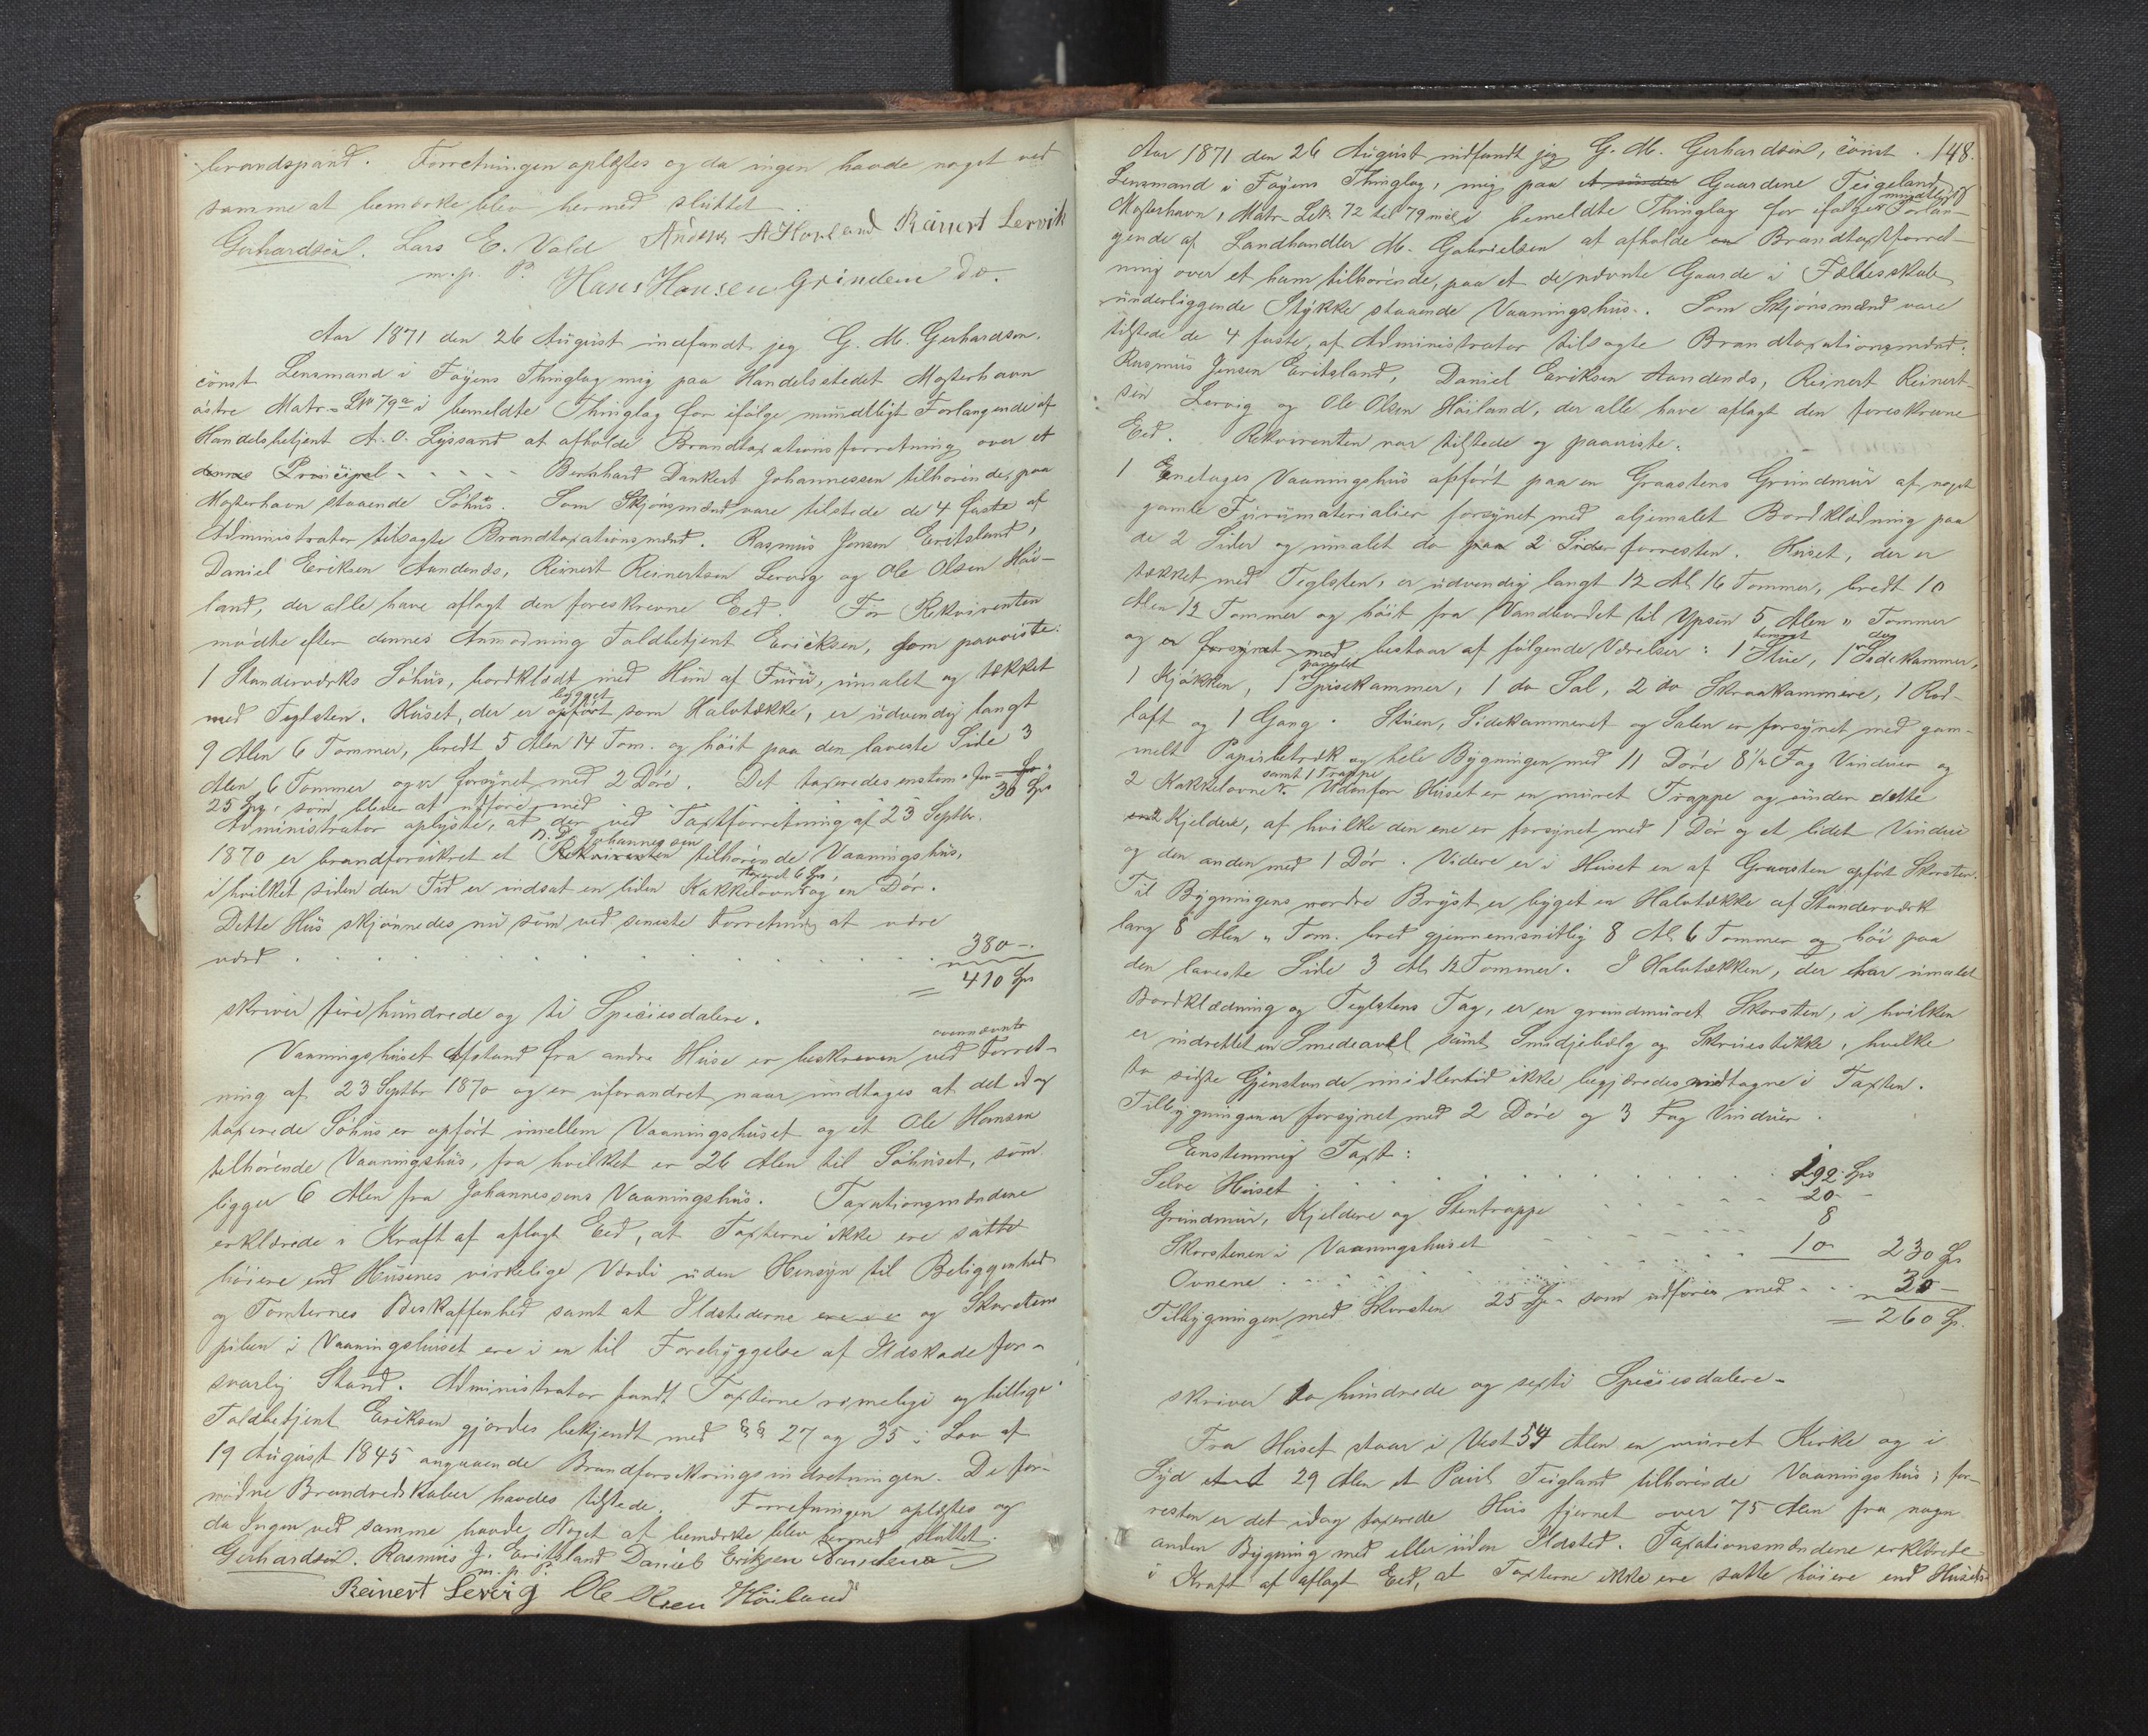 brandspand. Forretningen oplæstes og da ingen havde noget ved
samme at bemærke blev hermed sluttet.
Gerhardsen. Lars E. Vold Anders A Hovland Reinert Lervik
m. p. P. Hans Hansen Grindem do.
Aar 1871 den 26 August indfandt jeg G. M. Gerhardsen,
const. Lensmand i Føyens Thinglag mig paa Handelsstedet Mosterhavn
østre Matr. L No 79a i bemeldte Thinglag for ifølge mundtligt Forlangende af
Handelsbetjent A. O. Lyssand at afholde Brandtaxationsforretning over et
dennes Principal - - - - - Bernhard Dankert Johannessen tilhørende, paa
Mosterhavn staaende Söhus. Som Skjönsmænd vare tilstede de 4 faste af
Administrator tilsagte Brandtaxationsmænd. Rasmus Jensen Eritsland,
Daniel Eriksen Aandends, Reinert Reinertsen Lervig og Ole Olsen Höi-
land, der alle have aflagt den foreskrevne Eed. For Rekvirenten
mödte efter dennes Anmodning Toldbetjent Ericksen, som paaviste:
1 Standerværks Söhus, bordklædt med Hun af Furu, umalet og tækket
med Teglsten. Huset, der er opført bygget som Halvtække, er udvendig langt
9 Alen 6 Tommer, bredt 5 Alen 14 Tom. og höit paa den laveste Side 3
Alen 6 Tommer og er forsynet med 2 Döre. Det taxeredes enstem. for
25 Sp, som bliver at udföre med 30 Sp
Administrator oplyste, at der ved Taxtforretning af 23 Septbr.
1870 er brandforsikret et Rekvirenten B. D. Johannessen tilhörende Vaaningshus,
i hvilket siden den Tid er indsat en liden Kakkelovn taxeret 6 Sp, og en Dör.
Dette Hus skjönnedes nu som ved seneste Forretning at være
værd . . . . . 380 -
= 410 Sp
skriver fire hundrede og ti Speciesdalere.
Vaaningshuset Afstand fra andre Huse er beskreven ved ovennævnte Forret-
ning af 23 Septbr 1870 og er uforandret naar undtages at det idag
taxerede Söhus er opfört imellem Vaaningshuset og et Ole Hansen
tilhörende Vaaningshus, fra hvilket er 26 Alen til Söhuset, som
ligger 6 Alen fra Johannessens Vaaningshus. Taxationsmændene
erklærede i Kraft af aflagt Eed, at Taxterne ikke ere satte
höiere end Husenes virkelige Værdi uden Hensyn til Beliggenhed
og Tomternes Beskaffenhed samt at Ildstederne og Skorstens
piben i Vaaningshuset ere i en til Forebyggelse af Ildskade for-
svarlig Stand. Administrator fandt Taxterne rimelige og billige.
Toldbetjent Eriksen gjordes bekjendt med §§ 27 og 35 i Lov af
19 August 1845 angaaende Brandforsikringsindretningen. De for-
nødne Brandredskaber havdes tilstede. Forretningen oplæstes og
da Ingen ved samme havde Noget at bemærke blev hermed sluttet.
Gerhardsen. Rasmus J. Eritsland Daniel Eriksen Aandends
m. p. P.
Reinert Lervig Ole Olsen Höiland
148.
Aar 1871 den 26 August indfandt jeg G. M. Gerhardsen, const.
Lensmand i Føyens Thinglag, mig paa Gaardene Teigeland
Mosterhavn, Matr. L No 72 til 79 incl i bemeldte Thinglag for ifølge mundtligt Forlan-
gende af Landhandler M. Gabrielsen at afholde en Brandtaxtforret-
ning over et ham tilhörende, paa et de nævnte Gaarde i Fælleskab
underliggende Stykke staaende Vaaningshus. Som Skjönsmænd vare
tilstede de 4 faste, af Administrator tilsagte Brandtaxationsmænd:
Rasmus Jensen Eritsland, Daniel Eriksen Aandends, Reinert Reinert-
sen Lervig og Ole Olsen Höiland, der alle have aflagt den foreskrevne
Eed. Rekvirenten var tilstede og paaviste:
1 Enetages Vaaningshus opfört paa en Graastens Grundmur af noget
gamle Furumaterialier forsynet med oljemalet Bordklædning paa
de 2 Sider og umalet do paa 2 Sider forresten. Huset, der er
tækket med Teglsten, er udvendig langt 12 Al. 16 Tommer, bredt 10
Alen 12 Tommer og höit fra Vandbordet til Ypsen 5 Alen " Tommer
og er forsynet med bestaar af fölgende Værelser: 1 Stue, 1 do Sidekammer,
1 Kjökken, 1 panelet Spisekammer, 1 do Sal, 2 do Skraakammere, 1 Rod-
loft og 1 Gang. Stuen, Sidekammeret og Salen er forsynet med gam-
melt Papirbetræk og hele Bygningen med 11 Döre 8 1/2 Fag Vinduer og
2 Kakkelovne samt 1 Trappe. Udenfor Huset er en muret Trappe og under dette
2 Kjeldere, af hvilke den ene er forsynet med 1 Dör og et lidet Vindue
og den anden med 1 Dör. Videre er i Huset en af Graasten opfört Skorsten.
Til Bygningens nordre Bryst er bygget en Halvtække af Standerværk
lang 8 Alen " Tom. bred gjennemsnitlig 8 Al 6 Tommer og höi paa
den laveste Side 3 Al. 12 Tommer. I Halvtækken, der har umalet
Bordklædning og Teglstens Tag, er en grundmuret Skorsten, i hvilken
er indrettet en Smedeavl samt Smidjebælg og Skruestikke, hvilke
to sidste Gjenstande imidlertid ikke begjæredes medtagne i Taxten.
Tilbygningen er forsynet med 2 Döre og 3 Fag Vinduer.
Eenstemmig Taxt:
Selve Huset . . . . . 192 Sp
Grundmur, Kjeldere og Stentrappe . . . 20 -
Skorstenen i Vaaningshuset - - - 8
Ovnene . . . . . 10 230 Sp
Tilbygningen med Skorsten 25 Sp. som udföres med - - 30 -
= 260 Sp.
skriver to hundrede og sexti Speciesdalere -
Fra Huset staar i Vest 54 Alen en muret Kirke og i
Syd 29 Alen et Paul Teigland tilhörende Vaaningshus; for-
resten er det idag taxerede Hus fjernet over 75 Alen fra nogen
anden Bygning med eller uden Ildsted. Taxationsmændene erklærede
i Kraft af aflagt Eed, at Taxterne ikke ere satte höiere end Husets